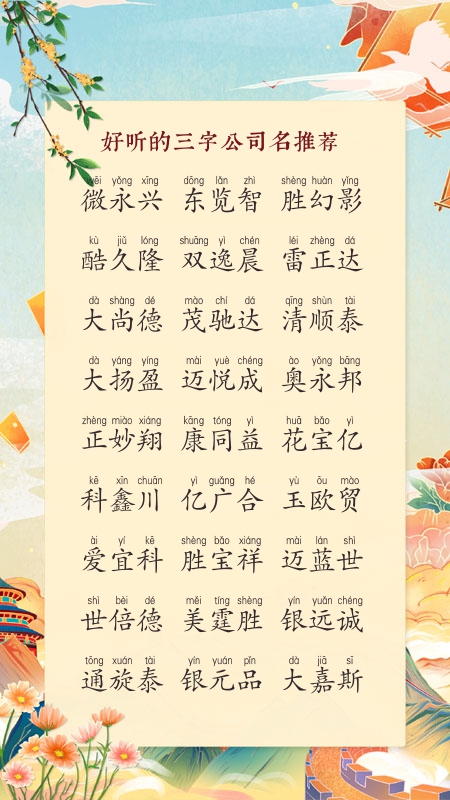 好听的三字公司名推荐
wēi yǒng xīng dōng lǎn zhì shèng huàn yǐng
微永兴 东览智 胜幻影
kù jiǔ lóng shuāng yì chén léi zhèng dá
酷久隆 双逸晨 雷正达
dà shàng dé mào chí dá qīng shùn tài
大尚德 茂驰达 清顺泰
dà yáng yíng mài yuè chéng ào yǒng bāng
大扬盈 迈悦成 奥永邦
zhèng miào xiáng kāng tóng yì huā bǎo yì
正妙翔 康同益 花宝亿
kē xīn chuān yì guǎng hé yù ōu mào
科鑫川 亿广合 玉欧贸
ài yí kē shèng bǎo xiáng mài lán shì
爱宜科 胜宝祥 迈蓝世
shì bèi dé měi tíng shèng yín yuǎn chéng
世倍德 美霆胜 银远诚
tōng xuán tài yín yuán pǐn dà jiā sī
通旋泰 银元品 大嘉斯